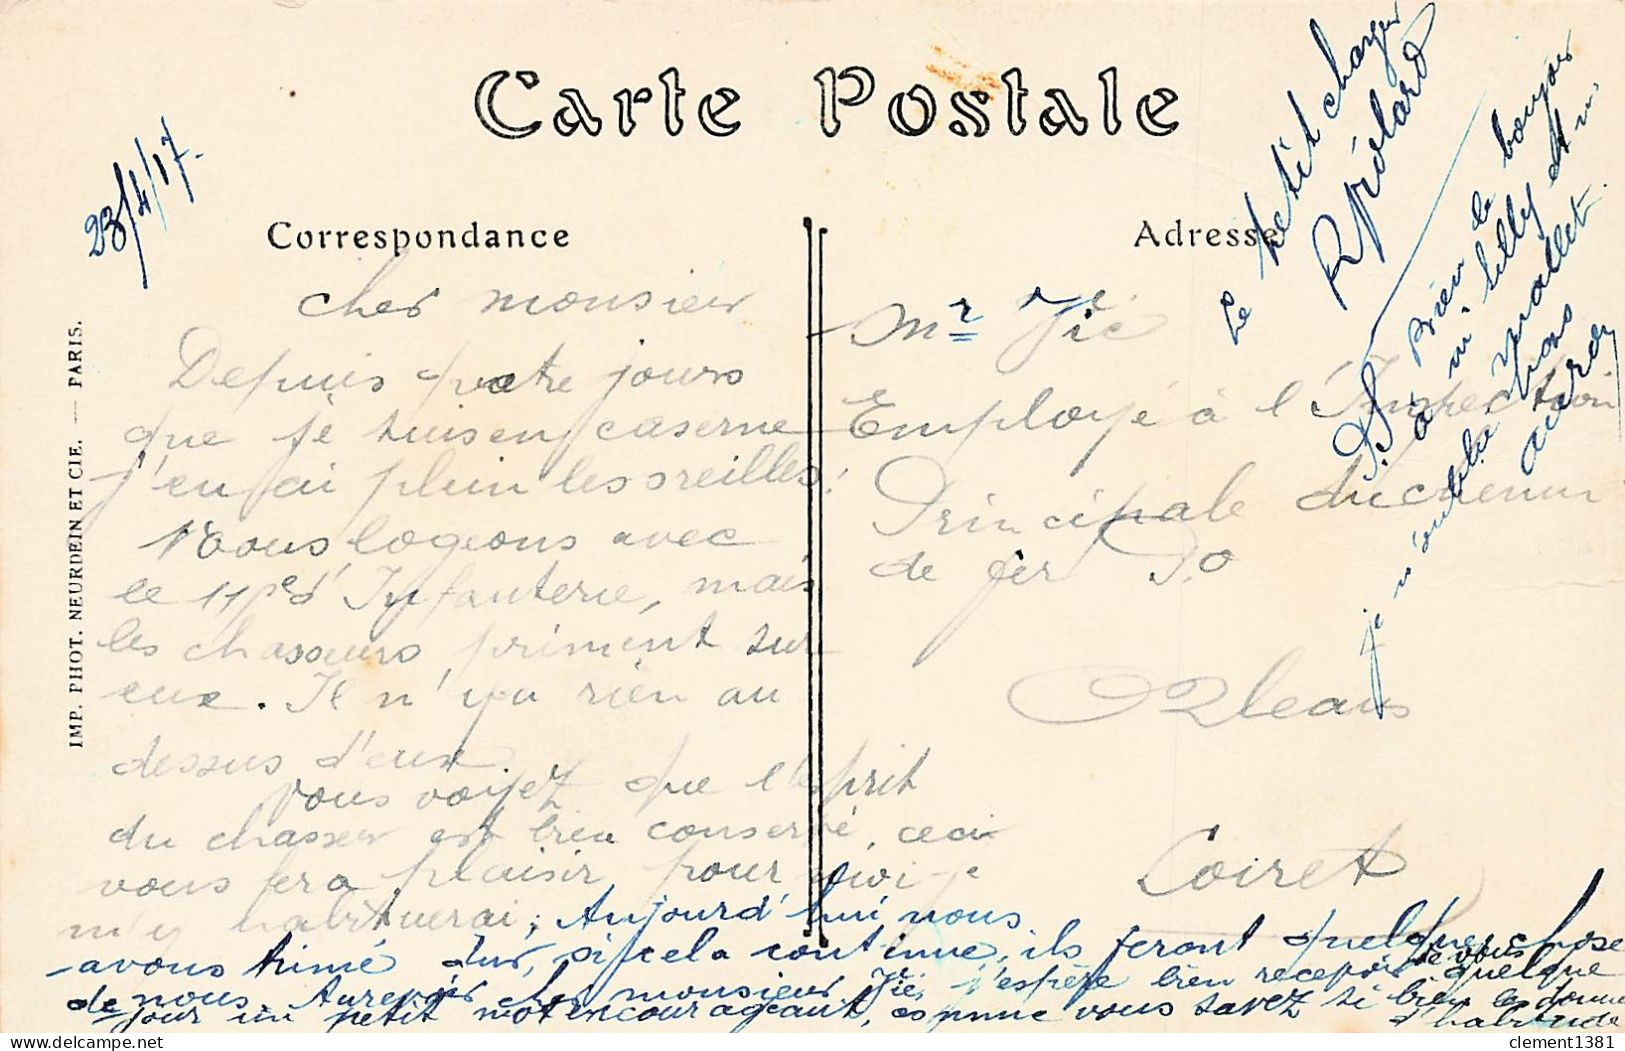 Carte Postale
23/4/17.
Correspondance
Adresse
IMP. PHOT. NEURDEIN ET CIE. — PARIS.
cher monsieur
Depuis quatre jours
que je suis en caserne
j'en ai plein les oreilles!
Nous logeons avec
le d'Infanterie, mais
les chasseurs priment sur
eux. Il n'y a rien au
dessus d'eux.
vous voyez que l'esprit
du chasseur est bien conservé, ceci
vous fera plaisir, pour moi je
m'y habituerai; Aujourd'hui nous
avons trimé dur, si cela continue, ils feront quelque chose
de nous. Aurevoir cher monsieur Vié, j'espère bien recevoir de vous quelque
jour un petit mot encourageant, comme vous savez si bien les donner
d'habitude
Mr Vié
Employé à l'Inspection
Principale du chemin
de fer P.O
Orléans
Loiret
Le petit
R
P.S. bien le bonjour
à m. Lilly et m.
mallet.
je n'oublie pas